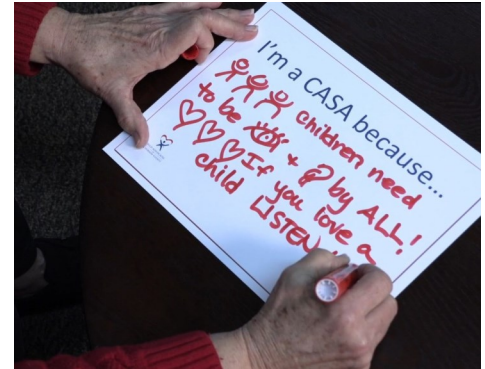 I'm a CASA because...
children need
to be + by ALL!
If you love a
child LISTEN